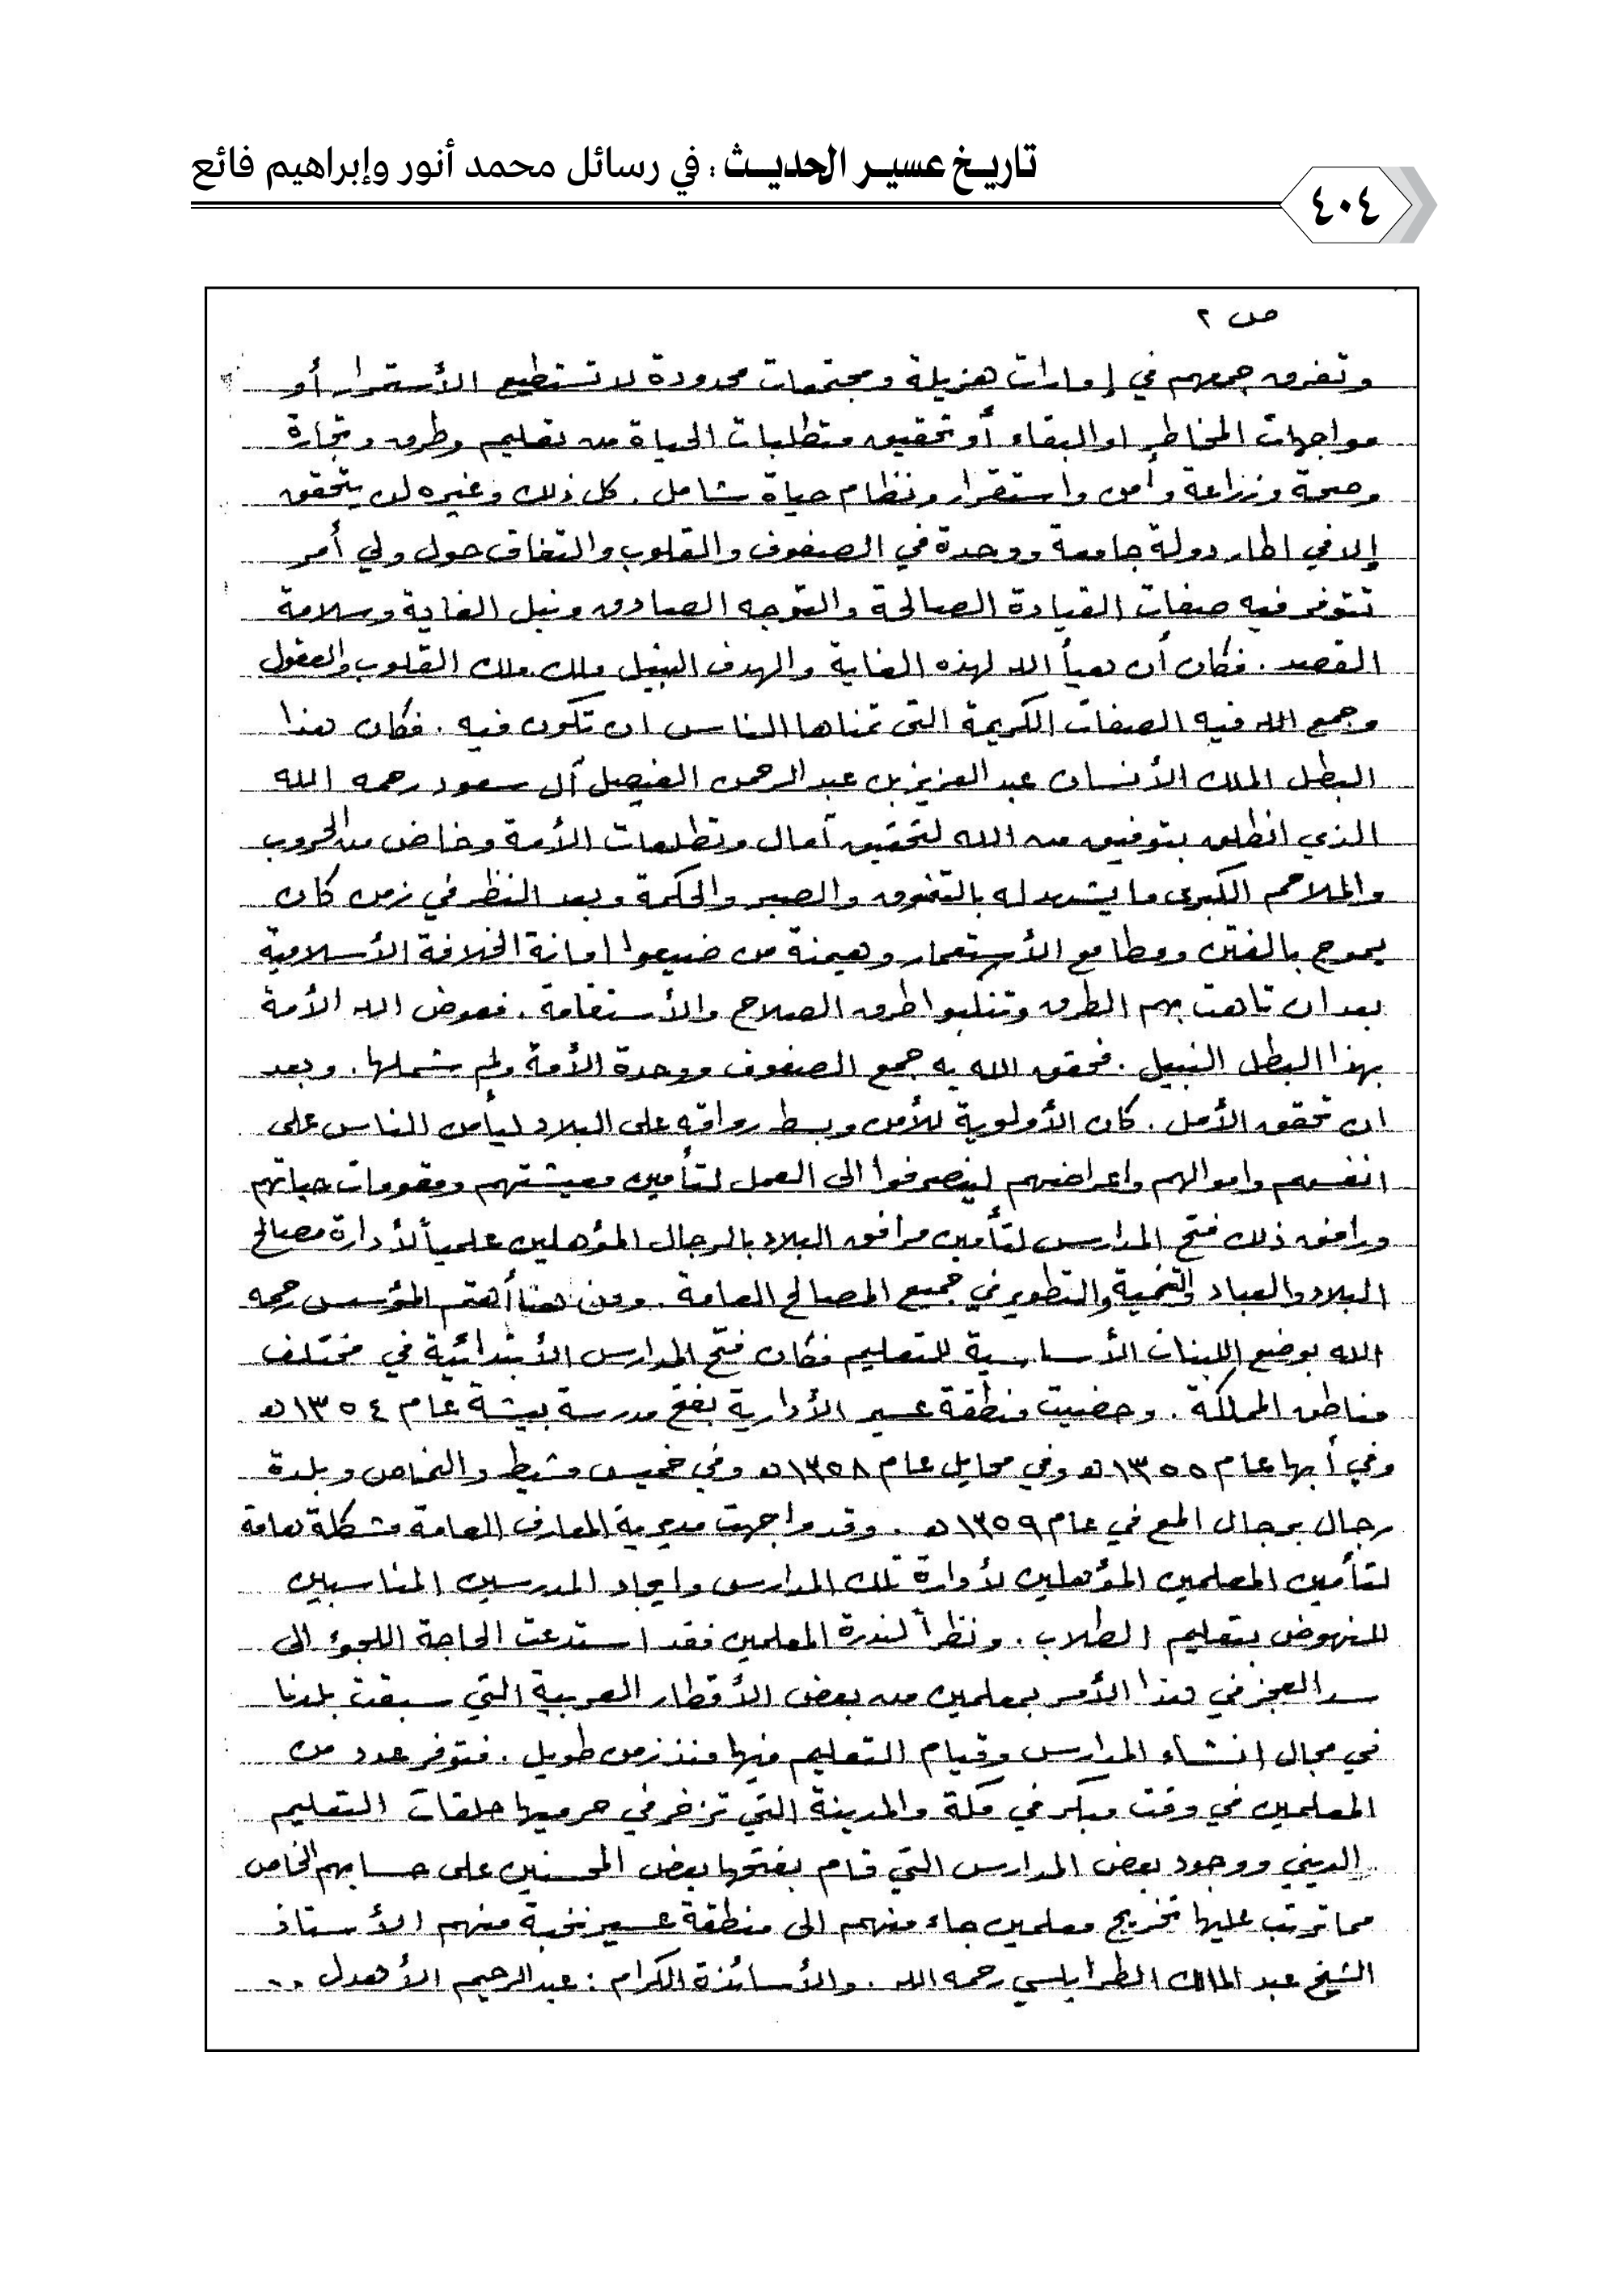 تاريخ عسير الحديث : في رسائل محمد أنور وإبراهيم فائع
٤٠٤
ص ٢
وتفرق جمعهم في إمارات هزيلة ومجتمعات محدودة لا تستطيع الأستقرار أو
مواجهات المخاطر او البقاء أو تحقيق متطلبات الحياة من تعليم وطرق وتجارة
وصحة وزراعة وأمن واستقرار ونظام حياة شامل . كل ذلك وغيره لن يتحقق
إلا في اطار دولة جامعة ووحدة في الصفوف والقلوب والتفاف حول ولي أمر
تتوفر فيه صفات القيادة الصالحة والتوجه الصادق ونبل الغاية وسلامة
القصد . فكان أن هيأ الله لهذه الغاية والهدف النبيل ملك ملك القلوب والعقول
وجمع الله فيه الصفات الكريمة التي تمناها الناس ان تكون فيه . فكان هذا
البطل الملك الأنسان عبد العزيز بن عبد الرحمن الفيصل آل سعود رحمه الله
الذي انطلق بتوفيق من الله لتحقيق آمال وتطلعات الأمة وخاض من الحروب
والملاحم الكبرى ما يشهد له بالتفوق والصبر والحكمة وبعد النظر في زمن كان
يموج بالفتن ومطامع الأستعمار وهيمنة من ضيعوا امانة الخلافة الأسلامية
بعد ان تاهت بهم الطرق وتنكبوا طرق الصلاح والأستقامة . فعوض الله الأمة
بهذا البطل النبيل . فحقق الله به جمع الصفوف ووحدة الأمة ولم شملها . وبعد
ان تحقق الأمل . كان الأولوية للأمن وبسط رواقه على البلاد ليأمن الناس على
انفسهم واموالهم واعراضهم لينصرفوا الى العمل لتأمين معيشتهم ومقومات حياتهم
ورافق ذلك فتح المدارس لتأمين مرافق البلاد بالرجال المؤهلين علمياً لأدارة مصالح
البلاد والعباد والتنمية والتطوير في جميع المصالح العامة . ومن هنا أهتم المؤسس رحمه
الله بوضع اللبنات الأساسية للتعليم فكان فتح المدارس الأبتدائية في مختلف
مناطق المملكة . وحضيت منطقة عسير الأدارية بفتح مدرسة بيشة عام ١٣٥٤ هـ
وفي أبها عام ١٣٥٥ هـ وفي محايل عام ١٣٥٨ هـ وفي خميس مشيط والنماص وبلدة
رجال برجال المع في عام ١٣٥٩ هـ . وقد واجهت مديرية المعارف العامة مشكلة هامة
لتأمين المعلمين المؤهلين لأدارة تلك المدارس وايجاد المدرسين المناسبين
للنهوض بتعليم الطلاب . ونظراً لندرة المعلمين فقد استدعت الحاجة اللجوء الى
سد العجز في هذا الأمر بمعلمين من بعض الأقطار العربية التي سبقت بلدنا
في مجال انشاء المدارس وقيام التعليم فيها منذ زمن طويل . فتوفر عدد من
المعلمين في وقت مبكر في مكة والمدينة التي تزخر في حرميها حلقات التعليم
الديني ووجود بعض المدارس التي قام بفتحها بعض المحسنين على حسابهم الخاص
مما ترتب عليها تخريج معلمين جاء منهم الى منطقة عسير نخبة منهم الأستاذ
الشيخ عبد المالك الطرابلسي رحمه الله . والأساتذة الكرام : عبد الرحيم الأهدل ..